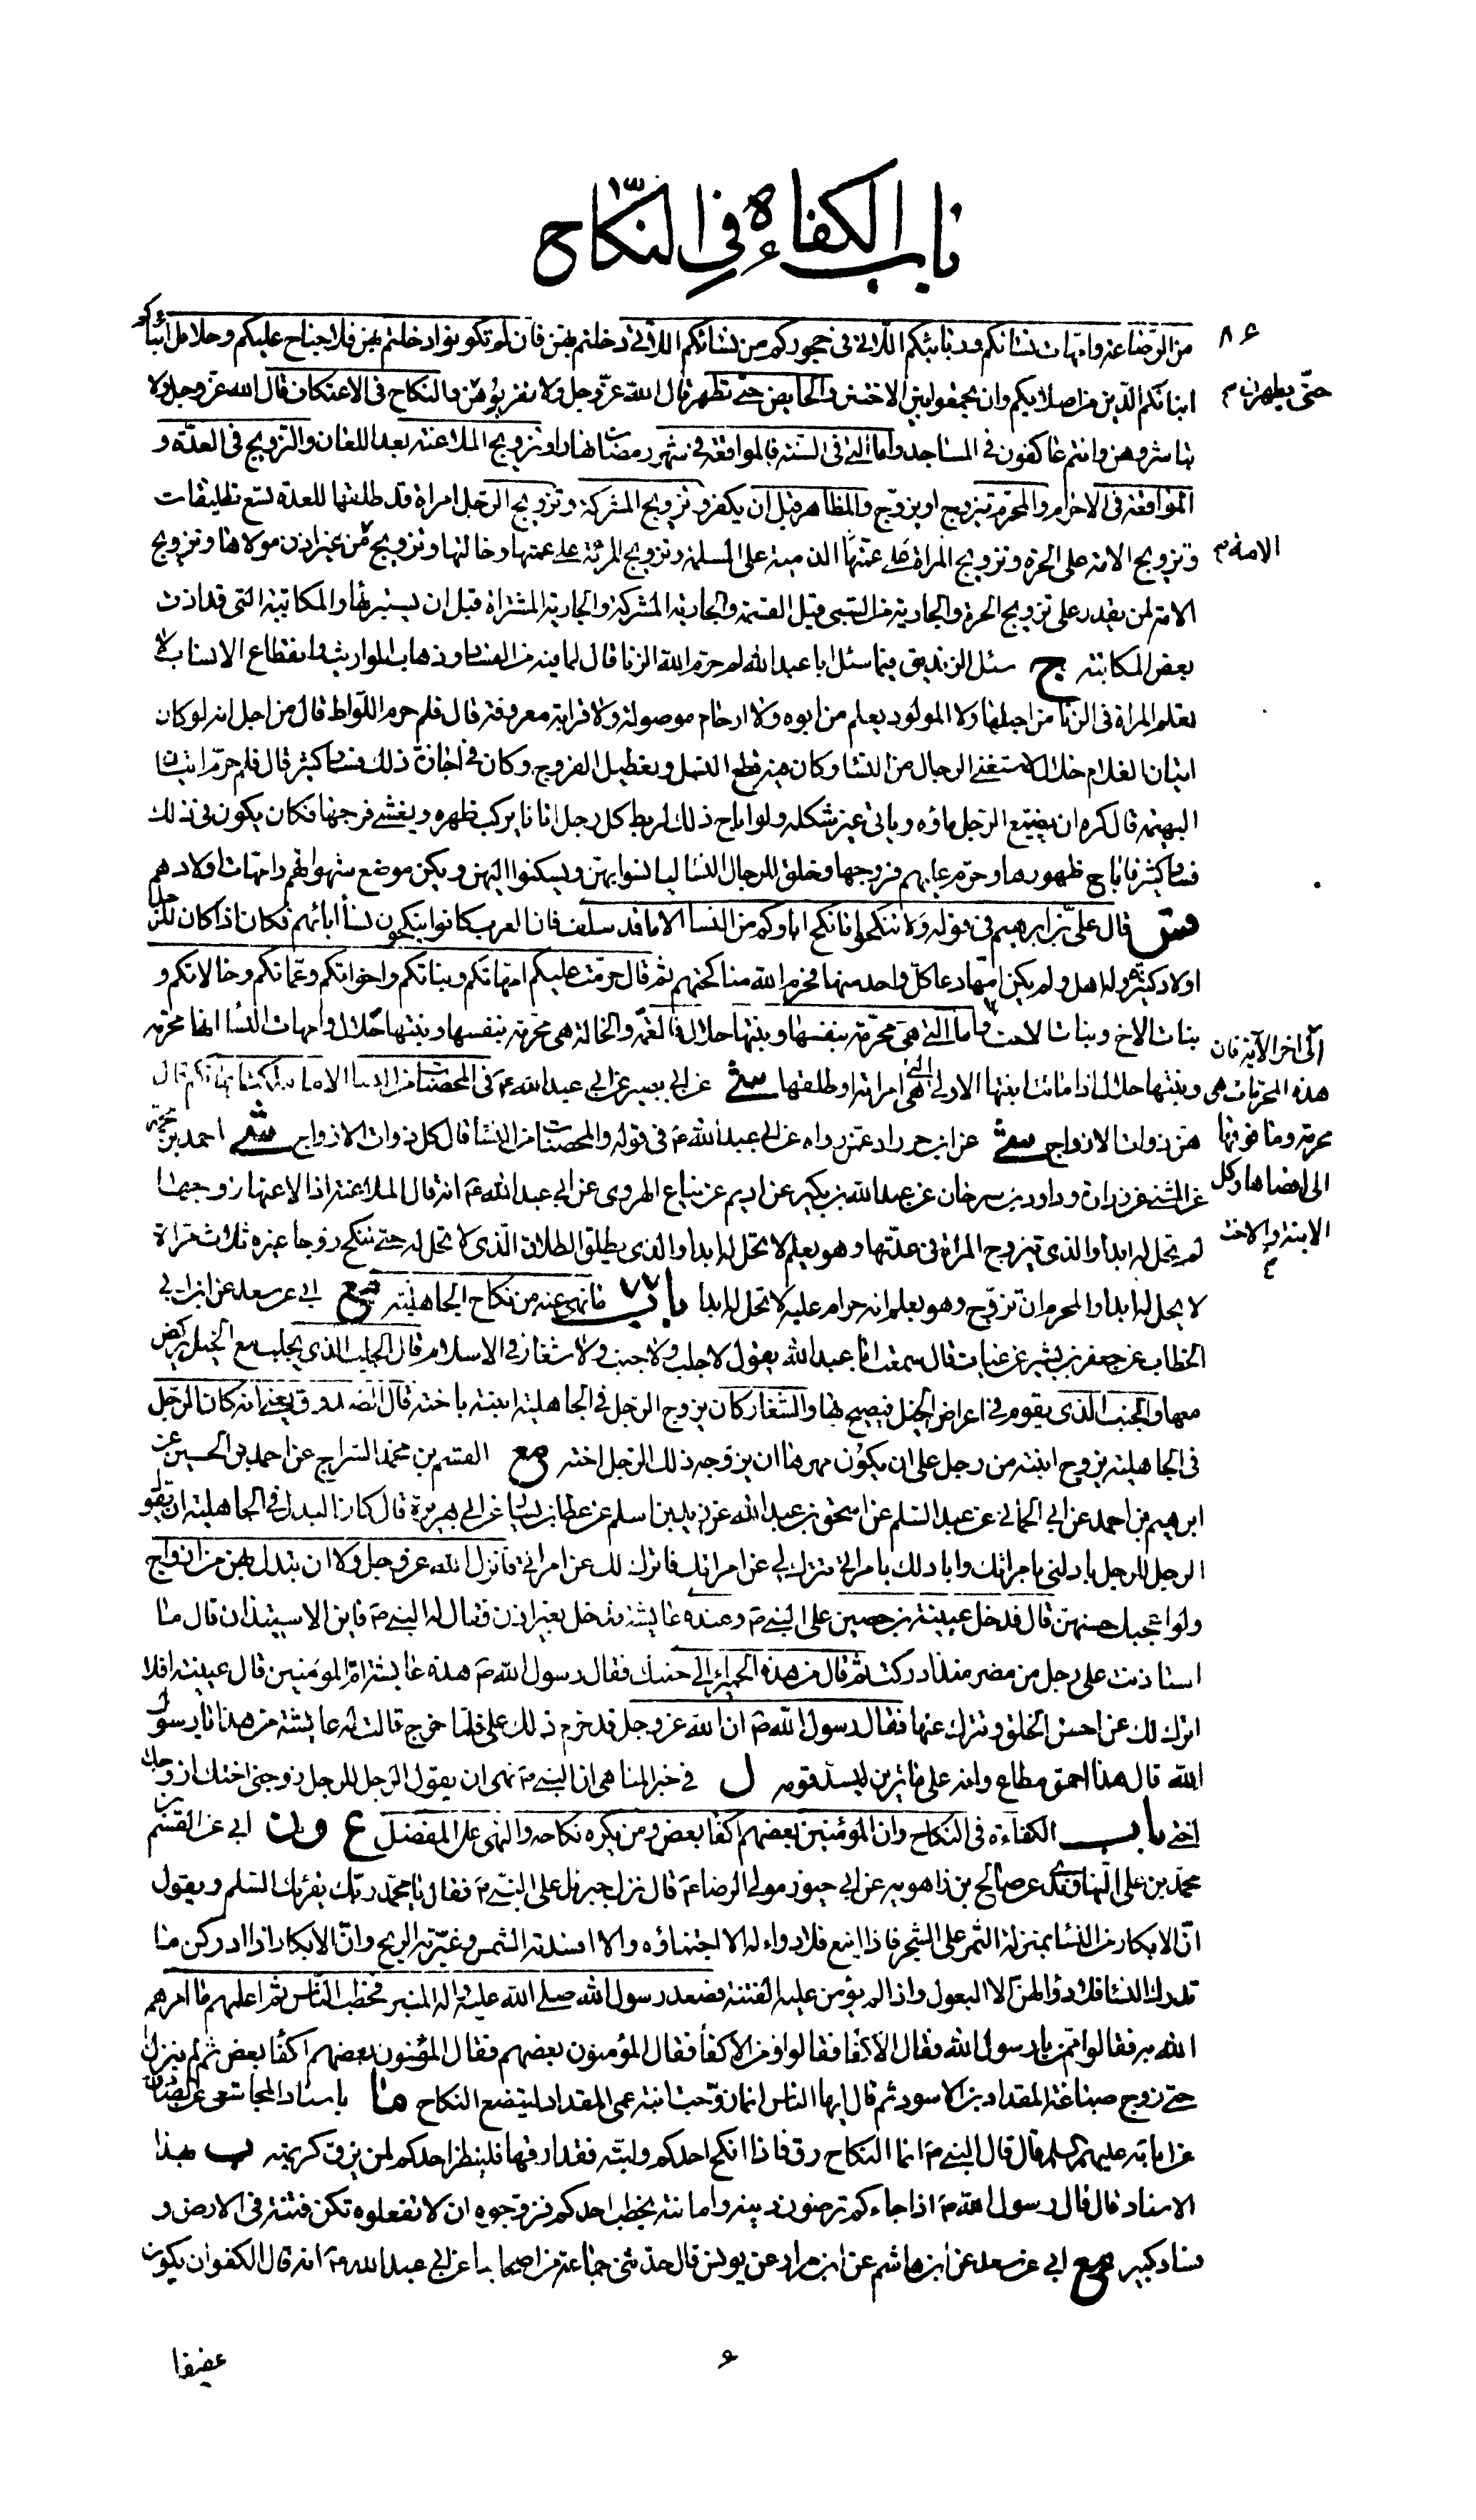 باب الكفاءة في النكاح
٨٤
من الرّضاعة وامّهات نسائكم وربائبكم اللّاتي في حجوركم من نسائكم اللاتي دخلتم بهنّ فان لم تكونوا دخلتم بهنّ فلا جناح عليكم وحلائل ابنائكم
ابنائكم الّذين من اصلابكم وان تجمعوا بين الاختين والحايض حتّى تطهر قال اللّه عزّ وجل ولا تقربوهنّ والنكاح في الاعتكاف قال الله عزّ وجلّ ولا
حتّى يطهرن م
تباشروهنّ وانتم عاكفون في المساجد وامّا الّتي في السّنة فالمواقعة في شهر رمضان نهارا وتزويج الملاعنة بعد اللّعان والتزويج في العدّة و
المواقعة في الاحرام والمحرم يتزوج او يزوّج والمظاهر قبل ان يكفر وتزويج المشركة وتزويج الرّجل امراة قد طلّقها للعدّة تسع تطليقات
وتزويج الامة على الحرّة وتزويج الذمية على المسلمة وتزويج المراة على عمتها وخالتها وتزويج من غير اذن مولاها وتزويج
الامة م
الامة لمن يقدر على تزويج الحرة والجارية من السّبى قبل القسمة والجارية المشركة والجارية المشتراة قبل ان يستبرئها والمكاتبة التي قد ادّت
بعض المكاتبة ج سئل الزنديق فيما سئل ابا عبد الله لم حرّم اللّه الزنا قال لما فيه من الفساد وذهاب المواريث وانقطاع الانساب لا
تعلم المراة في الزنا من احبلها ولا المولود يعلم من ابوه ولا ارحام موصولة ولا قرابة معروفة قال فلم حرم اللّواط قال من اجل انه لو كان
اتيان الغلام حلالا لاستغنى الرجال من النساء وكان فيه قطع النسل وتعطيل الفروج وكان في اجازة ذلك فساد كثير قال فلم حرّم اتيان
البهيمة قال كره ان يضيّع الرّجل ماؤه وياتي غير شكله ولو اباح ذلك لربط كل رجل اتانا يركب ظهره ويغشى فرجها فكان يكون في ذلك
فساد كثير فاباح ظهورها وحرّم عليهم فروجها وخلق للرجال النساء ليانسوا بهنّ ويسكنوا اليهنّ ويكنّ موضع شهواتهم وامّهات اولادهم
قال علىّ بن ابرهيم في قوله ولا تنكحوا ما نكح اباؤكم من النساء الا ما قد سلف فان العرب كانوا ينكحون نساء ابائهم فكان اذا كان للرّجل
اولاد كثيرة وله اهل ولم يكن امّها ادعا كلّ واحد منها فحرّم اللّه مناكحتهم ثمّ قال حرّمت عليكم امّهاتكم وبناتكم واخواتكم وعمّاتكم وخالاتكم و
بنات الاخ وبنات الاخت وامّا الّتي هي محرّمة بنفسها وبنتها حلال فالعمّة والخالة هي محرّمة بنفسها وبنتها حلال وامهات النساء انها محرّمة
الى اخر الاية فان
هذه المحرمات هى
محرمة وما فوقها
الى اقصاها وكل
الابنة والاخت
م
وبنتها حلال اذا ماتت ابنتها الاولى التي هي امراته او طلقها شى عن ابي بصير عن ابي عبد اللّه ع في المحصنات من النساء الا ما ملكت ايمانكم قال
هنّ ذوات الازواج شى عن ابن خرزاد عمّن رواه عن ابي عبد الله ع في قوله والمحصنات من النّساء قال كل ذوات الازواج شى احمد بن محمّد
عن المثنى عن زرارة وداود بن سرحان عن عبد اللّه بن بكير عن اديم عن بياع الهروي عن ابي عبد اللّه ع انه قال الملاعنة اذا لاعنها زوجها
لم تحلّ له ابدا والذي يتزوج المراة في عدّتها وهو يعلم لا تحلّ له ابدا والذي يطلق الطلاق الّذي لا تحل له حتّى تنكح زوجا غيره ثلاث مرّات
لا تحل له ابدا والمحرم ان تزوّج وهو يعلم انه حرام عليه لا تحلّ له ابدا باب ما نهى عنه من نكاح الجاهليّة مع ابي عن سعد عن ابن ابي
الخطاب عن جعفر بن بشير عن غياث قال سمعت ابا عبد اللّه يقول لا جلب ولا جنب ولا شغار في الاسلام قال الجلب الذي يجلب مع الخيل يركض
معها والجنب الذي يقوم في اعراض الخيل فيصيح بها والشغار كان يزوج الرّجل في الجاهلية ابنته باخته قال الصّدوق يعنى انه كان الرّجل
في الجاهلية يزوج ابنته من رجل على ان يكون مهرها ان يزوّجه ذلك الرّجل اخته مع القسم بن محمّد السّراج عن احمد بن الحسين عن
ابرهيم بن احمد عن ابي الحمّاني عن عبد السّلم عن اسحق بن عبد اللّه عن زيد بن اسلم عن عطا بن يسار عن ابي هريرة قال كان البدل في الجاهلية ان يقول
الرجل للرجل بادلني بامراتك وابادلك بامراتي تنزل لي عن امراتك فانزل لك عن امراتي فانزل اللّه عز وجل ولا ان تبدل بهنّ من ازواج
ولو اعجبك حسنهنّ قال فدخل عيينة بن حصين على النبيّ ص وعنده عايشة فدخل بغير اذن فقال له النبيّ ص فاين الاستيذان قال ما
استاذنت على رجل من مضر منذ ادركت ثمّ قال من هذه الحميراء الى جنبك فقال رسول اللّه ص هذه عايشة امّ المؤمنين قال عيينة افلا
انزل لك عن احسن الخلق وتنزل عنها فقال رسول اللّه ص ان اللّه عزّ وجل قد حرّم ذلك على فلمّا خرج قالت له عايشة من هذا يا رسول
اللّه قال هذا احمق مطاع وانه على ما ترين ليسد قومه ل في خبر المناهى ان النبيّ ص نهى ان يقول الرّجل للرجل زوجني اختك ازوجك
اختي باب الكفاءة في النكاح وان المؤمنين بعضهم اكفاء بعض ومن يكره نكاحه والنهى عن المفضل ع ون ابي عن القسم بن
محمّد بن على النّهاوندي عن صالح بن زاهويه عن ابي حيون مولى الرضا ع قال نزل جبرئيل على النبيّ ص فقال يا محمّد ربّك يقرئك السّلم ويقول
انّ الابكار من النّساء بمنزلة الثّمر على الشّجر فاذا اينع فلا دواء له الا اجتناؤه والا افسدته الشمس وغيّرته الريح وانّ الابكار اذا ادركن ما
تدرك النساء فلا دواء لهنّ الا البعول واذا لم يؤمن عليه الفتنة فصعد رسول اللّه صلى اللّه عليه واله المنبر فخطب النّاس ثمّ اعلمهم ما امرهم
اللّه به فقالوا ممّن يا رسول اللّه فقال الاكفاء فقالوا ومن الاكفاء فقال المؤمنون بعضهم فقال المؤمنون بعضهم اكفاء بعض ثمّ لم ينزل
حتّى زوج ضباعة المقداد بن الاسود ثم قال ايها الناس انما زوّجت ابنة عمى المقداد ليتضع النكاح ما باسناد المجاشعى عن الصّادق
عن ابائه عليهم السّلم قال قال النبيّ ص انما النكاح رق فاذا انكح احدكم وليته فقد ارقها فلينظر احدكم لمن يرق كريمته ب بهذا
الاسناد قال قال رسول اللّه ص اذا جاءكم من ترضون دينه وامانته يخطب احدكم فزوّجوه ان لا تفعلوه تكن فتنة في الارض و
فساد كبير مع ابي عن سعد عن ابن هاشم عن ابن مرار عن يونس قال حدثنى جماعة من اصحابنا عن ابي عبد اللّه ع انه قال الكفو ان يكون
عفيفا